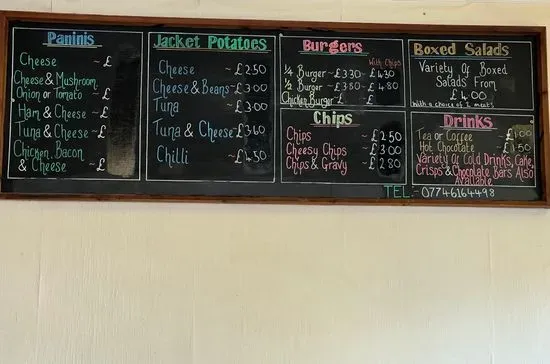 Paninis
Cheese ~ £
Cheese & Mushroom,
Onion or Tomato ~ £
Ham & Cheese ~ £
Tuna & Cheese ~ £
Chicken, Bacon
& Cheese ~ £
Jacket Potatoes
Cheese ~ £2.50
Cheese & Beans ~ £3.00
Tuna ~ £3.00
Tuna & Cheese ~ £3.60
Chilli ~ £4.50
Burgers
With Chips
1/4 Burger ~ £3.30 ~ £4.30
1/2 Burger ~ £3.80 ~ £4.80
Chicken Burger ~ £ ~ £
Chips
Chips ~ £2.50
Cheesy Chips ~ £3.00
Chips & Gravy ~ £2.80
Boxed Salads
Variety Of Boxed
Salads From
£4.00
With a choice of 2 meats
Drinks
Tea or Coffee ~ £1.00
Hot Chocolate ~ £1.50
Variety Of Cold Drinks, Cake,
Crisps & Chocolate Bars Also
Available
TEL:- 07746164498